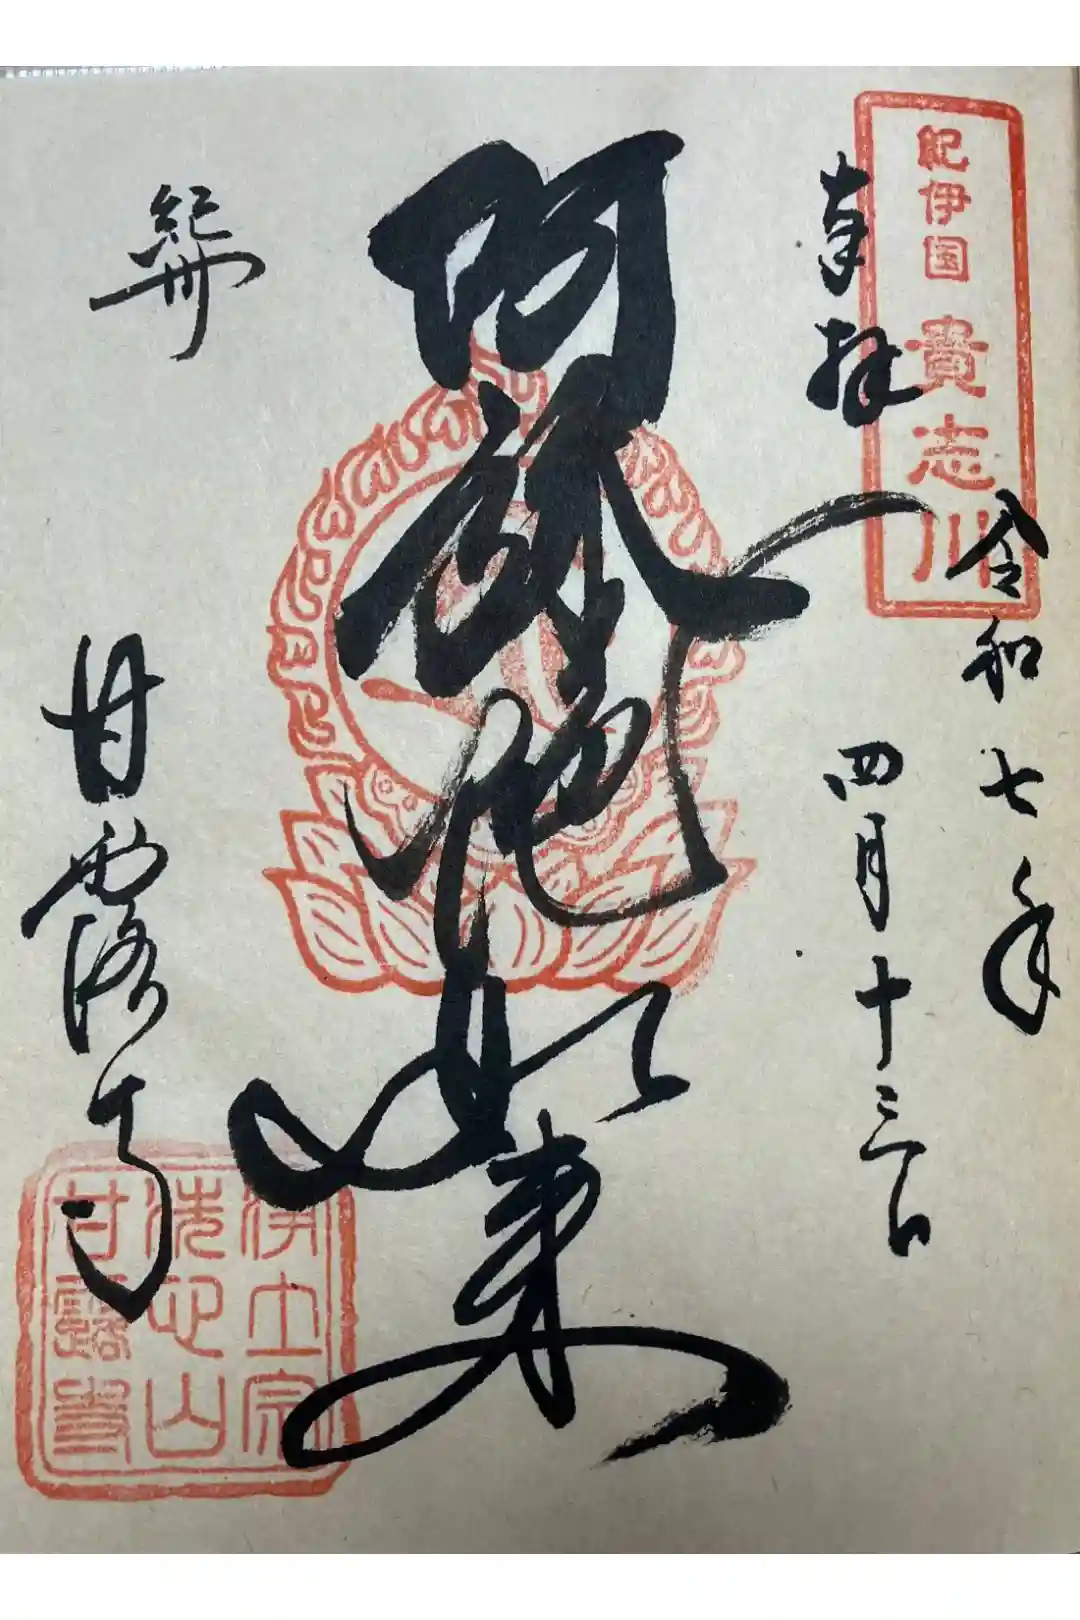 紀伊国 貴志川
奉拝
令和七年
四月十三日
阿弥陀如来
紀州
甘露寺
浄土宗
洗心山
甘露寺